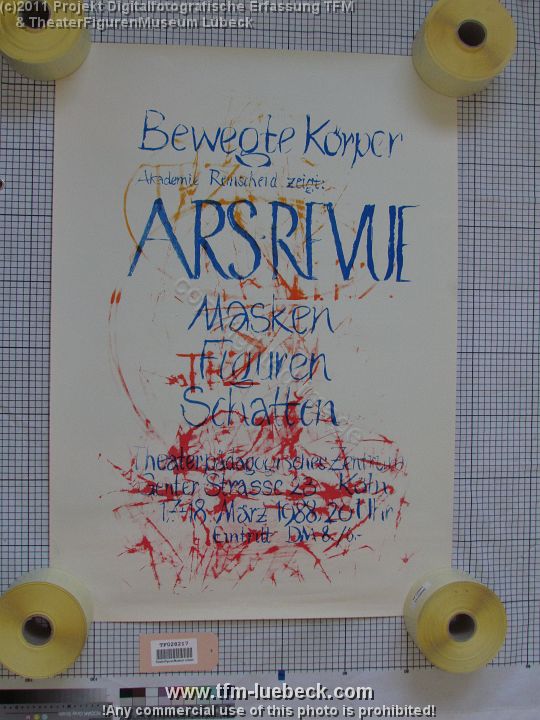 (c)2011 Projekt Digitalfotografische Erfassung TFM
& TheaterFigurenMuseum Lübeck
Bewegte Körper
Akademie Remscheid zeigt:
ARS:REVUE
Masken
Figuren
Schatten
Theaterpädagogisches Zentrum
Genter Strasse 23 Köln
17.+18. März 1988, 20 Uhr
Eintritt DM 8/6.-
TF026217
www.tfm-luebeck.com
!Any commercial use of this photo is prohibited!